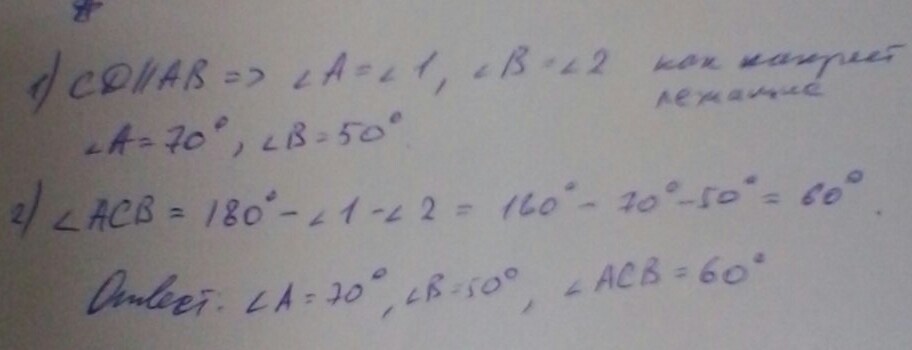 1) CD||AB => ∠A = ∠1, ∠B = ∠2 как накрест
лежащие
∠A = 70°, ∠B = 50°
2) ∠ACB = 180° - ∠1 - ∠2 = 180° - 70° - 50° = 60°.
Ответ: ∠A = 70°, ∠B = 50°, ∠ACB = 60°